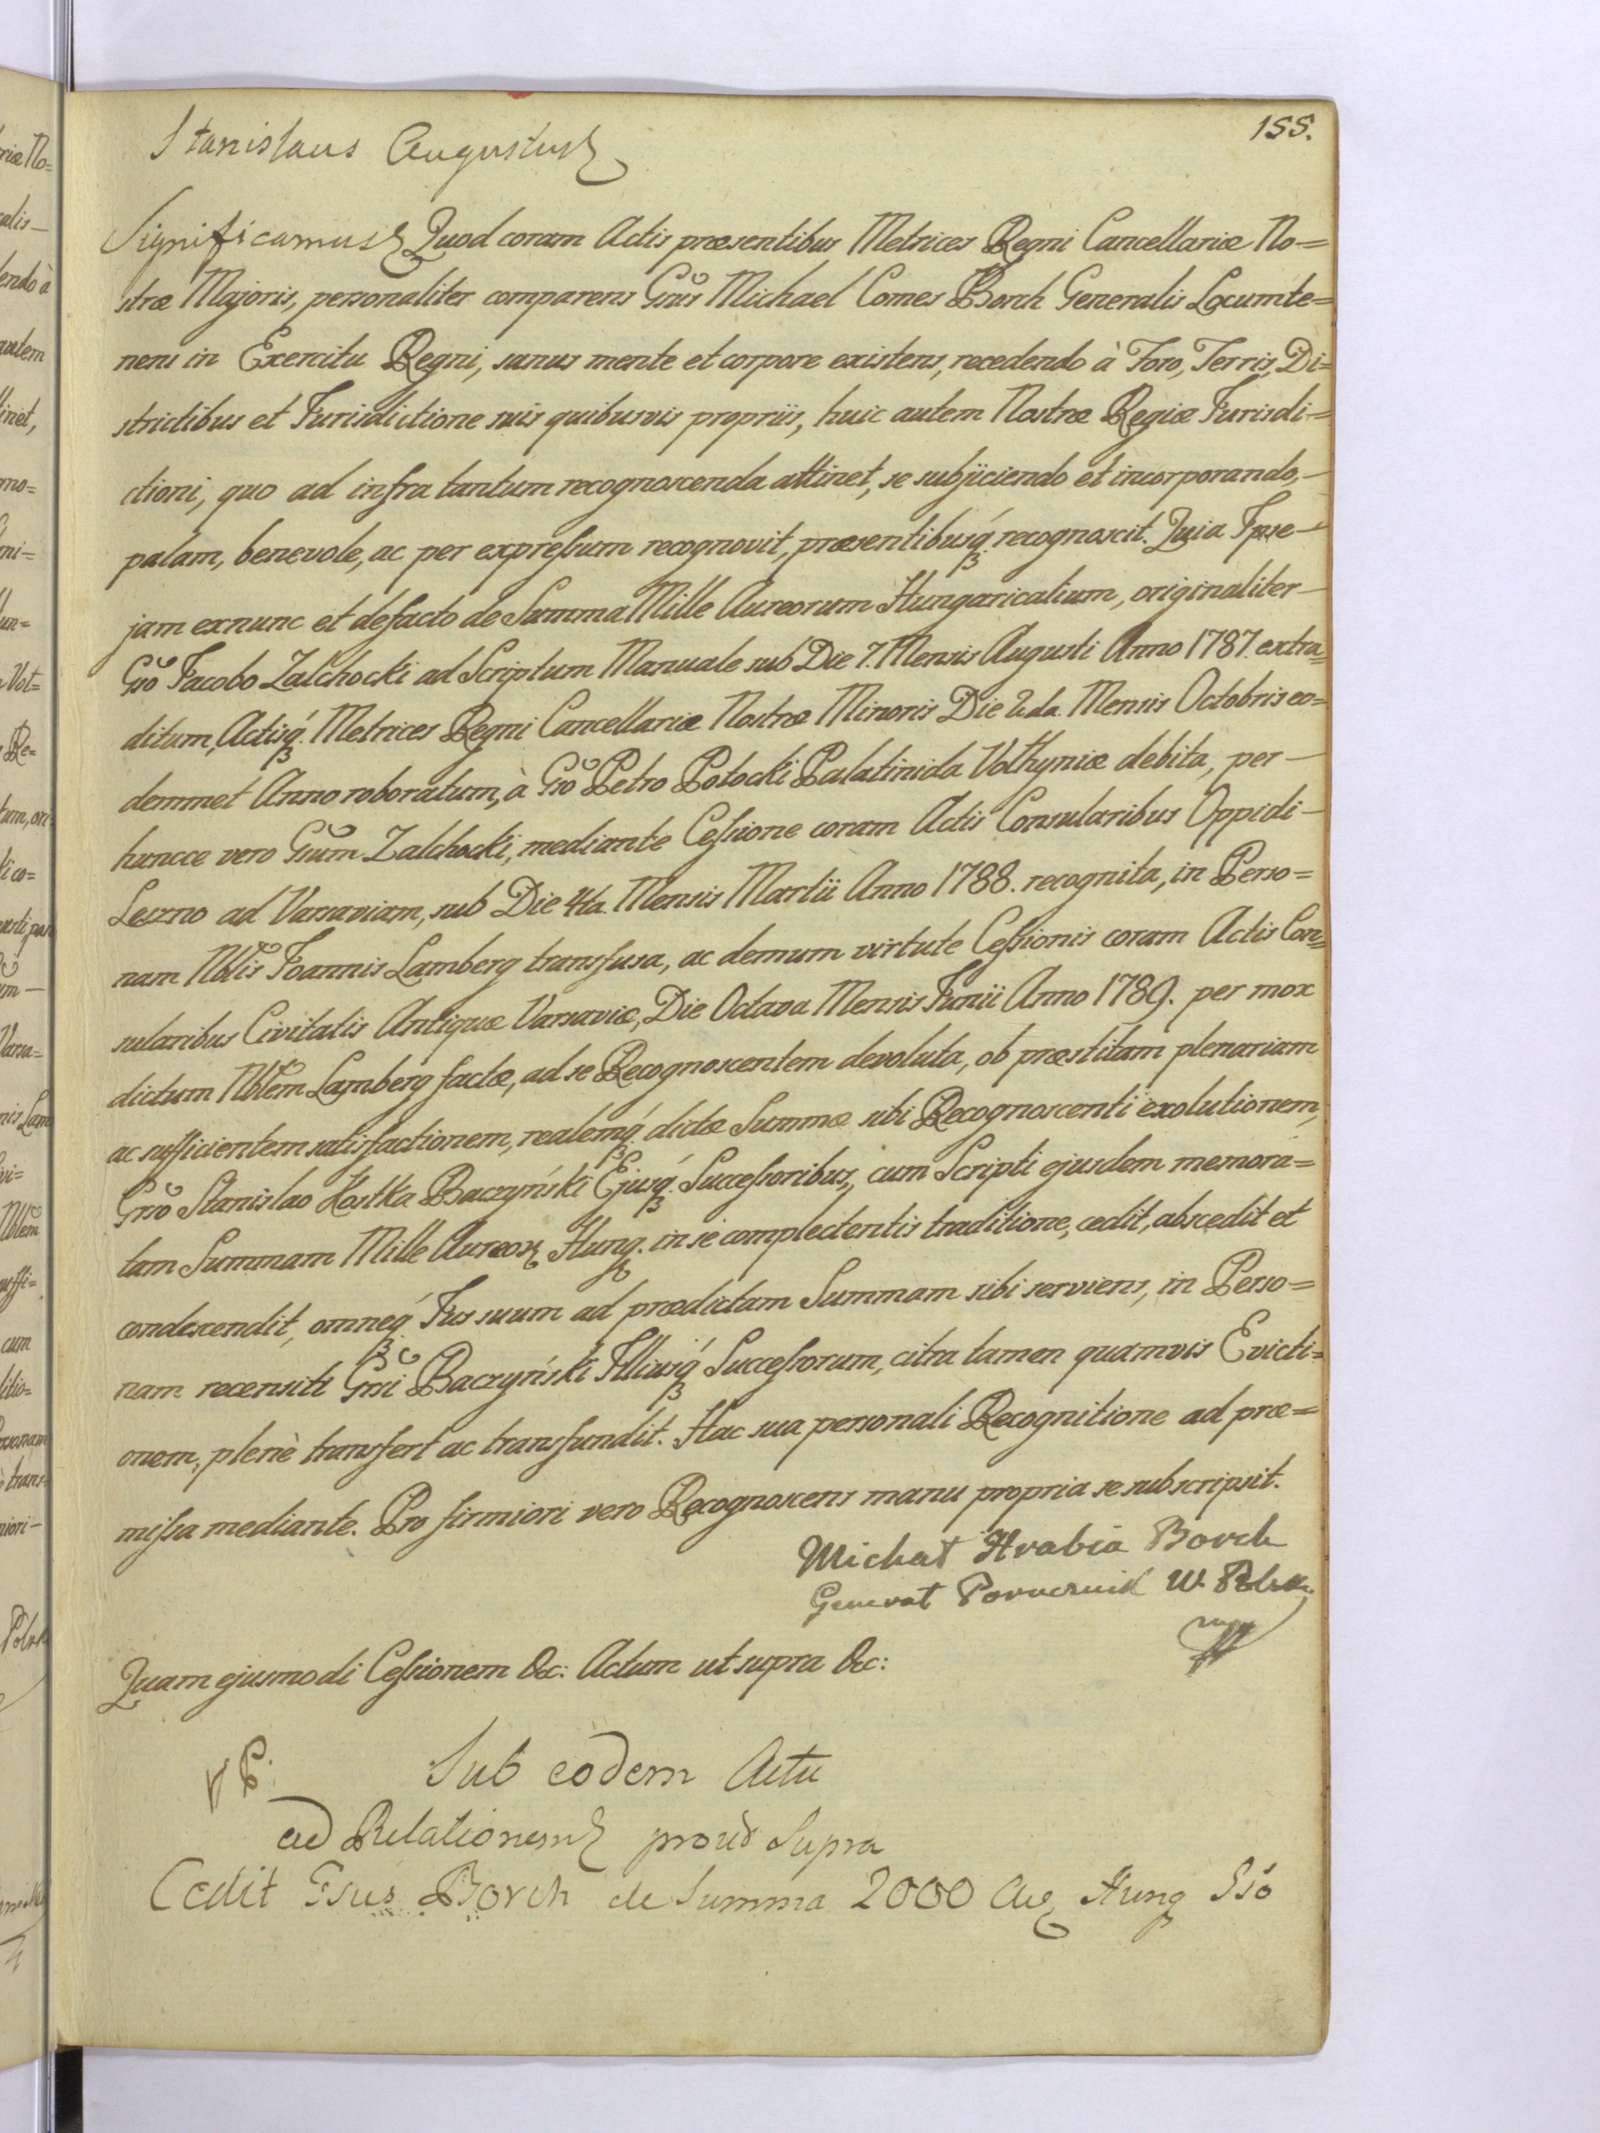 155.
Stanislaus Augustus
Significamus Quod coram Actis præsentibus Metrices Regni Cancellariæ No=
stræ Majoris, personaliter comparens Gsus Michael Comes Borch Generalis Locumte=
nens in Exercitu Regni, sanus mente et corpore existens, recedendo à Foro, Terris, Di=
strictibus et Jurisdictione suis quibusvis propriis, huic autem Nostræ Regiæ Jurisdi=
ctioni, quo ad infra tantum recognoscenda attinet, se subjiciendo et incorporando,
palam, benevole, ac per expressum recognovit, præsentibusq́ recognoscit. Quia Ipse
jam exnunc et defacto de Summa Mille Aureorum Hungaricalium, originaliter
Gso Jacobo Zalchocki ad Scriptum Manuale sub Die 7. Mensis Augusti Anno 1787. extra=
ditum, Actisq́ Metrices Regni Cancellariæ Nostræ Minoris Die 2da Mensis Octobris eo=
demmet Anno roboratum, à Gso Petro Potocki Palatinida Volhyniæ debita, per
huncce vero Gsum Zalchocki, mediante Cessione coram Actis Consularibus Oppidi
Leszno ad Varsaviam, sub Die 4ta Mensis Martii Anno 1788. recognita, in Perso=
nam Nblis Joannis Lamberg transfusa, ac demum virtute Cessionis coram Actis Con=
sularibus Civitatis Antiquæ Varsaviæ, Die Octava Mensis Junii Anno 1789. per mox
dictum Nblem Lamberg factæ, ad se Recognoscentem devoluta, ob præstitam plenariam
ac sufficientem satisfactionem, realemq́ dictæ Summæ sibi Recognoscenti exolutionem,
Gsso Stanislao Kostka Baczyński Ejusq́ Successoribus, cum Scripti ejusdem memora=
tam Summam Mille Aureor Hung. in se complectentis traditione, cedit, abscedit et
condescendit, omneq́ Jus suum ad prædictam Summam sibi serviens, in Perso=
nam recensiti Gssi Baczyński Illiusq́ Successorum, citra tamen quamvis Evicti=
onem, plenè transfert ac transfundit. Hac sua personali Recognitione ad præ=
missa mediante. Pro firmiori vero Recognoscens manu propria se subscripsit.
Michał Hrabia Borch
Generał Porucznik W. Polsk.
mpp
Quam ejusmodi Cessionem &c: Actum ut supra &c:
Sub eodem Actu
ad Relationem prout Supra
Cedit Gsus Borch de Summa 2000 Au Hung Gso